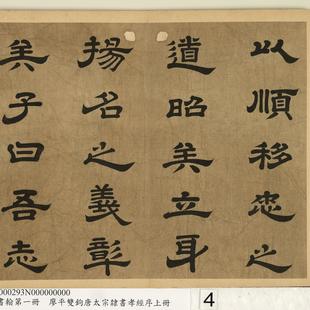 以順移忠之
道昭矣立身
揚名之義彰
矣子曰吾志
000293N000000000
書翰第一冊 廖平雙鉤唐太宗隸書孝經序上冊
4